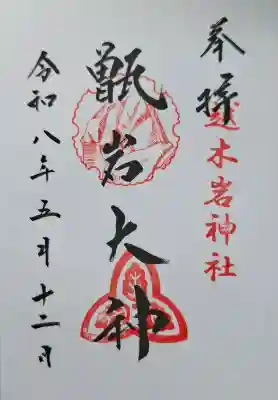 奉拝
越木岩神社
甑岩大神
令和八年五月十二日